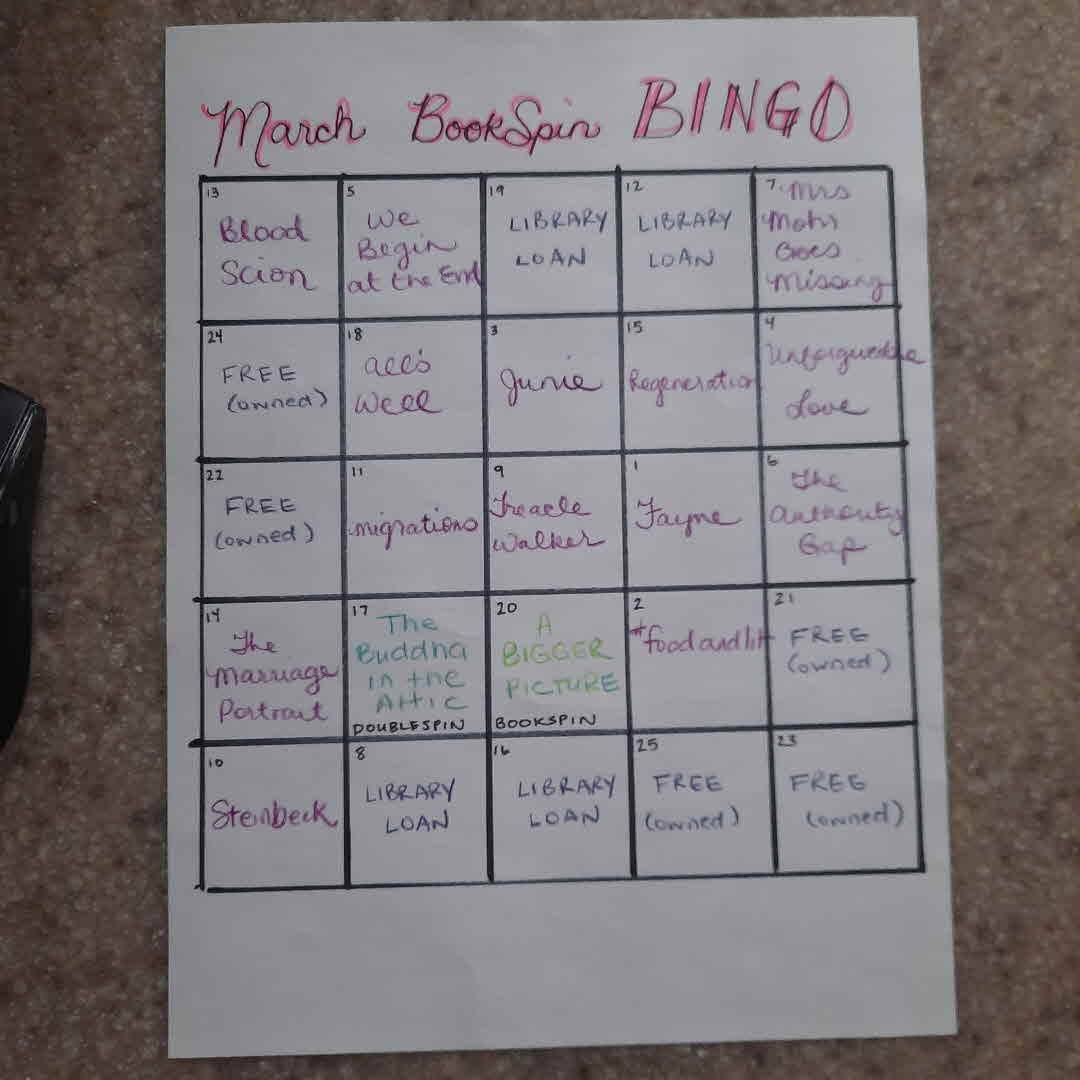 March BookSpin BINGO
13
Blood
Scion
5
We
Begin
at the End
19
LIBRARY
LOAN
12
LIBRARY
LOAN
7
Mrs
Mohr
Goes
Missing
24
FREE
(owned)
18
All's
Well
3
Junie
15
Regeneration
4
Unforgivable
Love
22
FREE
(owned)
11
migrations
9
Treacle
Walker
1
Fayne
6
The
Authority
Gap
14
The
Marriage
Portrait
17
The
Buddha
in the
Attic
DOUBLESPIN
20
A
BIGGER
PICTURE
BOOKSPIN
2
#foodandlit
21
FREE
(owned)
10
Steinbeck
8
LIBRARY
LOAN
16
LIBRARY
LOAN
25
FREE
(owned)
23
FREE
(owned)